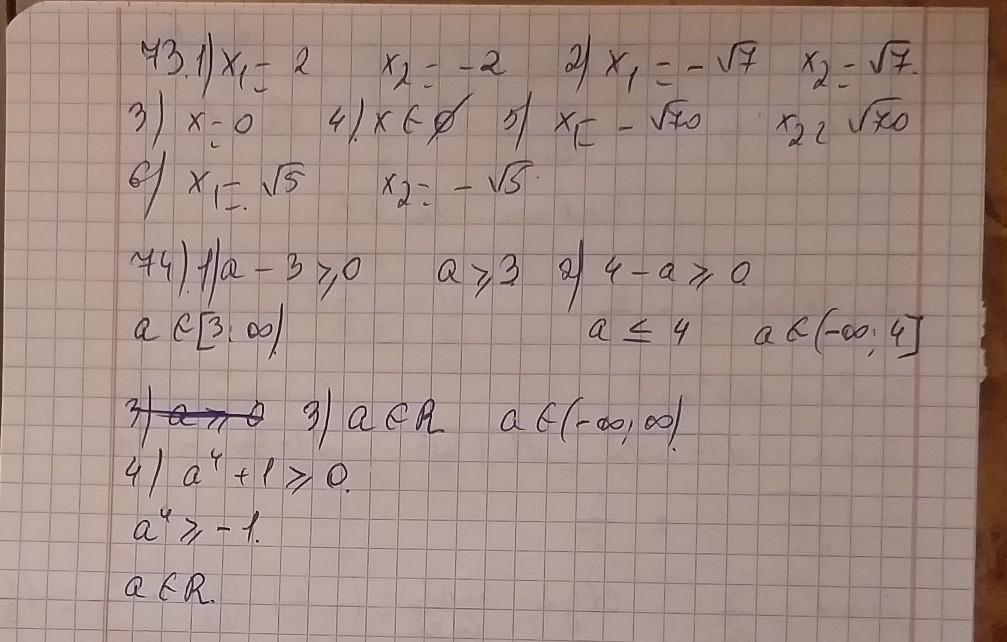 73.1) x₁ = 2 x₂ = -2 2) x₁ = -√7 x₂ = √7.
3) x = 0 4) x ∈ ∅ 5) x₁ = -√70 x₂ = √70
6) x₁ = √5 x₂ = -√5.
74).1) a - 3 ⩾ 0 a ⩾ 3 2) 4 - a ⩾ 0
a ∈ [3; ∞) a ≤ 4 a ∈ (-∞; 4]
3) a ⩾ 0 3) a ∈ R a ∈ (-∞; ∞).
4) a⁴ + 1 ⩾ 0.
a⁴ ⩾ -1.
a ∈ R.